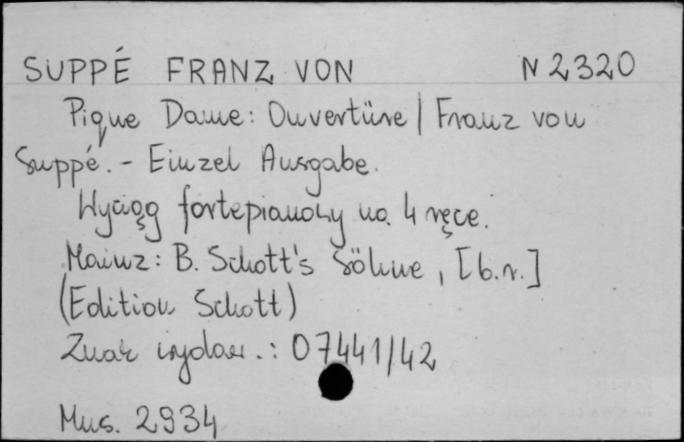 SUPPÉ FRANZ VON N 2320
Pique Dame: Ouvertüre / Franz von
Suppé. - Einzel Ausgabe.
Wyciąg fortepianowy na 4 ręce.
Mainz: B. Schott's Söhne, [b.r.]
(Edition Schott)
Znak wydaw.: 07441/42
Mus. 2934